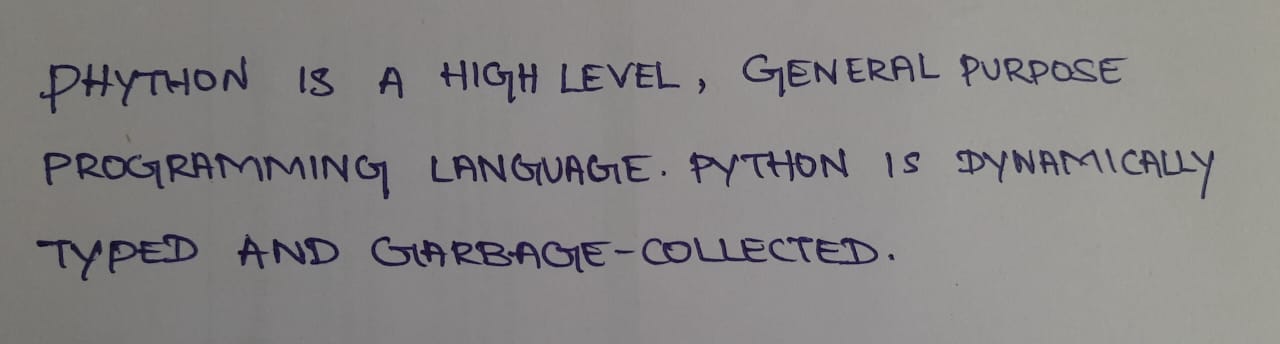 PHYTHON IS A HIGH LEVEL, GENERAL PURPOSE
PROGRAMMING LANGUAGE. PYTHON IS DYNAMICALLY
TYPED AND GARBAGE-COLLECTED.